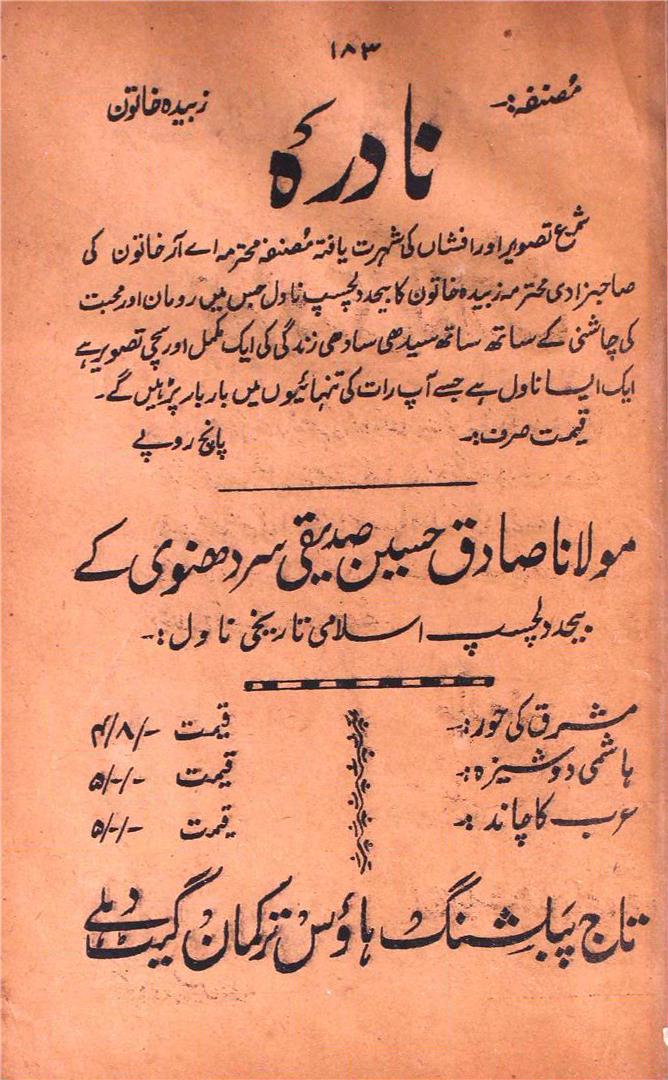 ۱۸۳
مصنفہ:- زبیدہ خاتون
نادرہ
شمع تصویر اور افشاں کی شہرت یافتہ مصنفہ محترمہ اے آر خاتون کی
صاحبزادی محترمہ زبیدہ خاتون کا بیحد دلچسپ ناول جس میں رومان اور محبت
کی چاشنی کے ساتھ ساتھ سیدھی سادھی زندگی کی ایک مکمل اور سچی تصویر ہے
ایک ایسا ناول ہے جسے آپ رات کی تنہائیوں میں بار بار پڑہیں گے۔
قیمت صرف:- پانچ روپے
مولانا صادق حسین صدیقی سردھنوی کے
بیحد دلچسپ اسلامی تاریخی ناول:-
مشرق کی حور:- قیمت ۴/۸/-
ہاشمی دوشیزہ:- قیمت ۵/-/-
عرب کا چاند:- قیمت ۵/-/-
تاج پبلشنگ ہاؤس ترکمان گیٹ دہلی